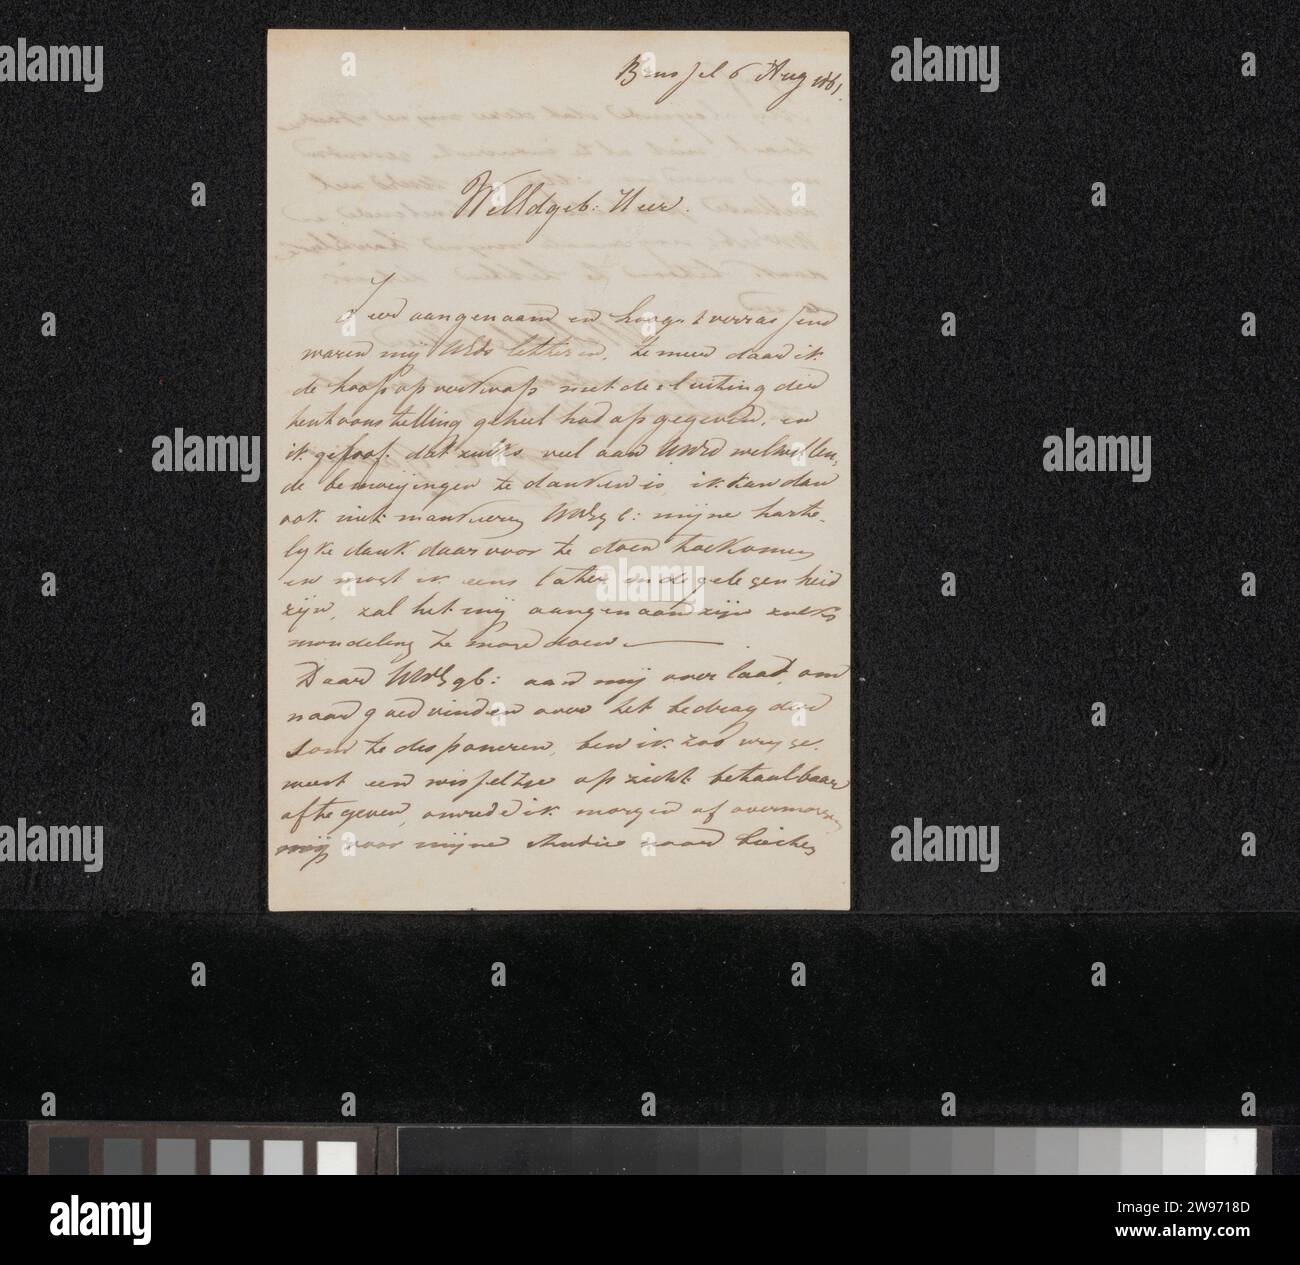 Brussel 6 Aug 1861.
WelEdgeb: Heer.
Zeer aangenaam en hoogst verrassend
waren mij UEds letteren, te meer daar ik
de hoop op verkoop met de sluiting der
tentoonstelling geheel had opgegeven, en
ik geloof dat zulks veel aan UWEd welwillen,
de bemoeijingen te danken is, ik kan dan
ook niet mankeren UWEgb: mijne harte-
lijke dank daarvoor te doen toekomen
en mogt ik eens later in de gelegenheid
zijn, zal het mij aangenaam zijn zulks
mondeling te mogen doen
Daar UWEgb: aan mij overlaat, om
naar goedvinden over het bedrag der
som te disponeren, ben ik zoo vrij ge,
weest een wisseltje op zicht betaalbaar
af te geven, omrede ik morgen of overmorgen
mij voor mijne studie naar
alamy
a
2W9718D
www.alamy.com